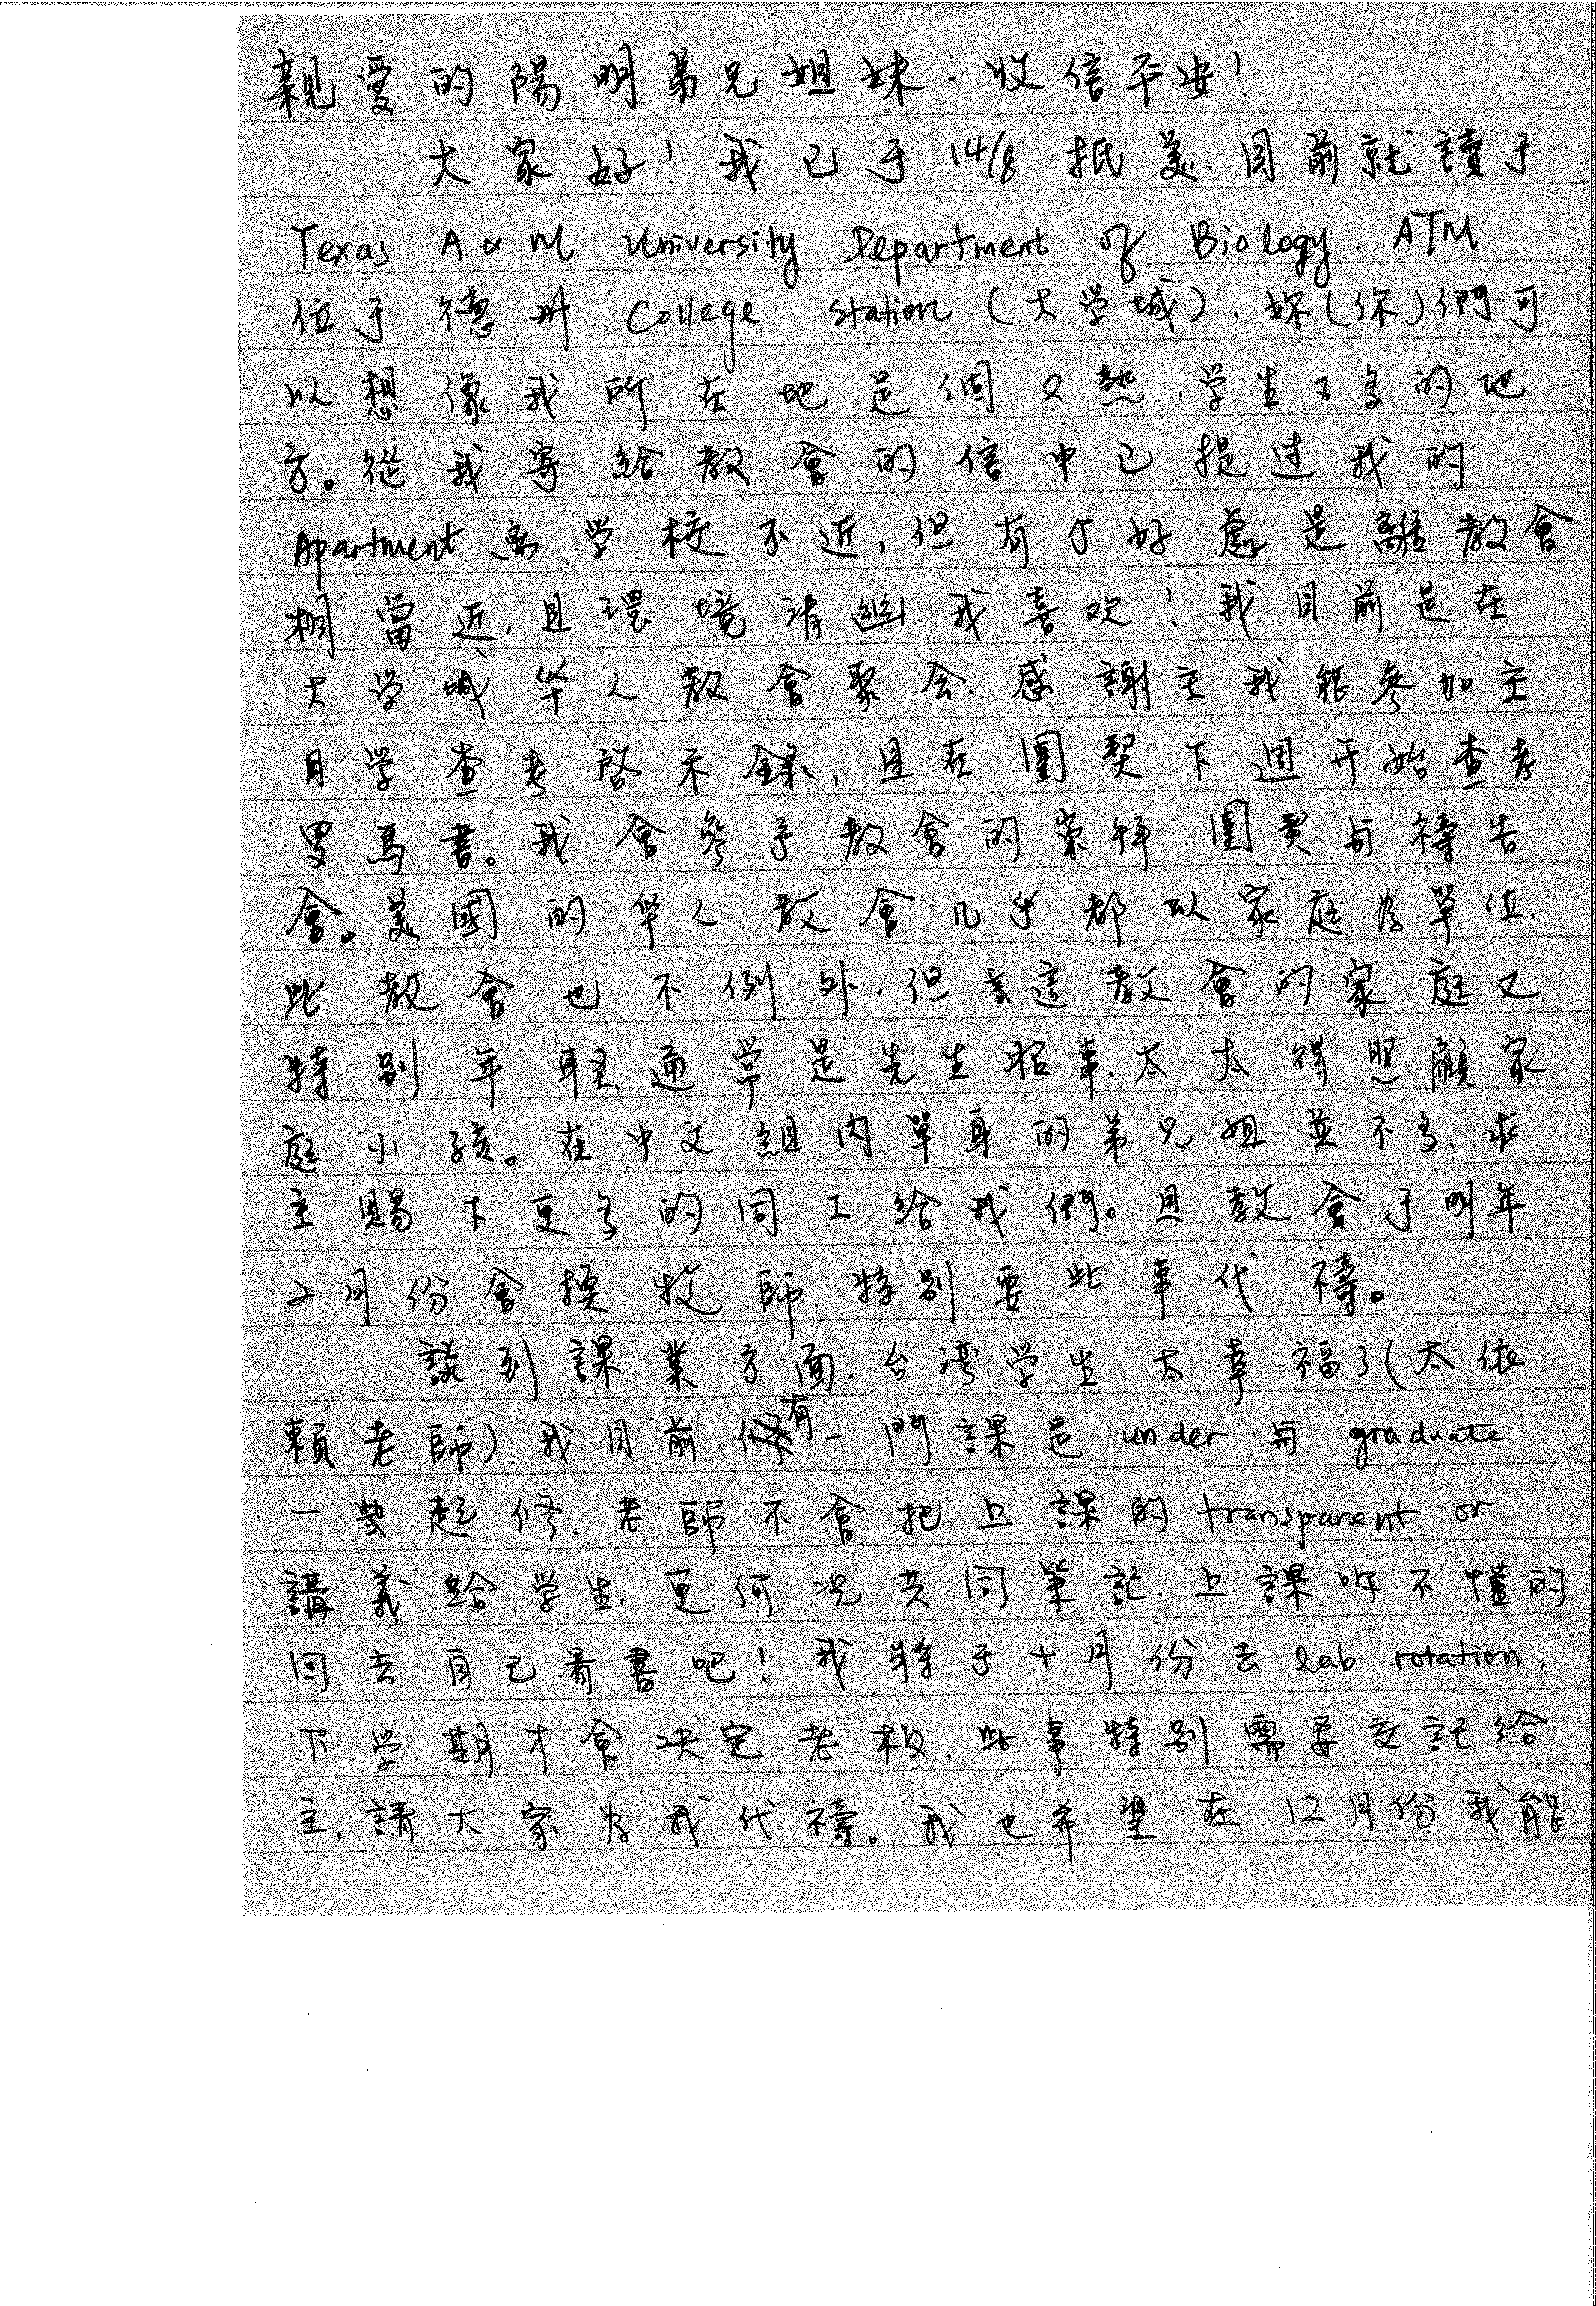 親愛的陽明弟兄姐妹：收信平安！
大家好！我已于14/8抵美.目前就讀于
Texas A&M University Department of Biology. ATM
位于德州 College Station (大学城), 妳(你)們可
以想像我所在地是個又熱,学生又多的地
方。從我寄給教會的信中已提过我的
Apartment 离学校不近,但有个好處是離教會
相當近,且環境清幽.我喜欢！我目前是在
大学城华人教會聚会.感謝主我能參加主
日学查考啓示錄,且在團契下週开始查考
罗馬書。我會參予教會的崇拜.團契与禱告
會。美國的华人教會几乎都以家庭为單位.
此教會也不例外.但這教會的家庭又
特別年輕.通常是先生服事.太太得照顧家
庭小孩。在中文組内單身的弟兄姐並不多.求
主賜下更多的同工給我們。且教會于明年
2月份會換牧師.特別要此事代禱。
談到課業方面.台湾学生太幸福了(太依
賴老師).我目前有一門課是 under 与 graduate
一些起修.老師不會把上課的 transparent or
講義給学生.更何况共同筆記.上課听不懂的
回去自己看書吧！我将于十月份去 lab rotation.
下学期才會决定老板.此事特別需要交託給
主.請大家为我代禱。我也希望在12月份我能